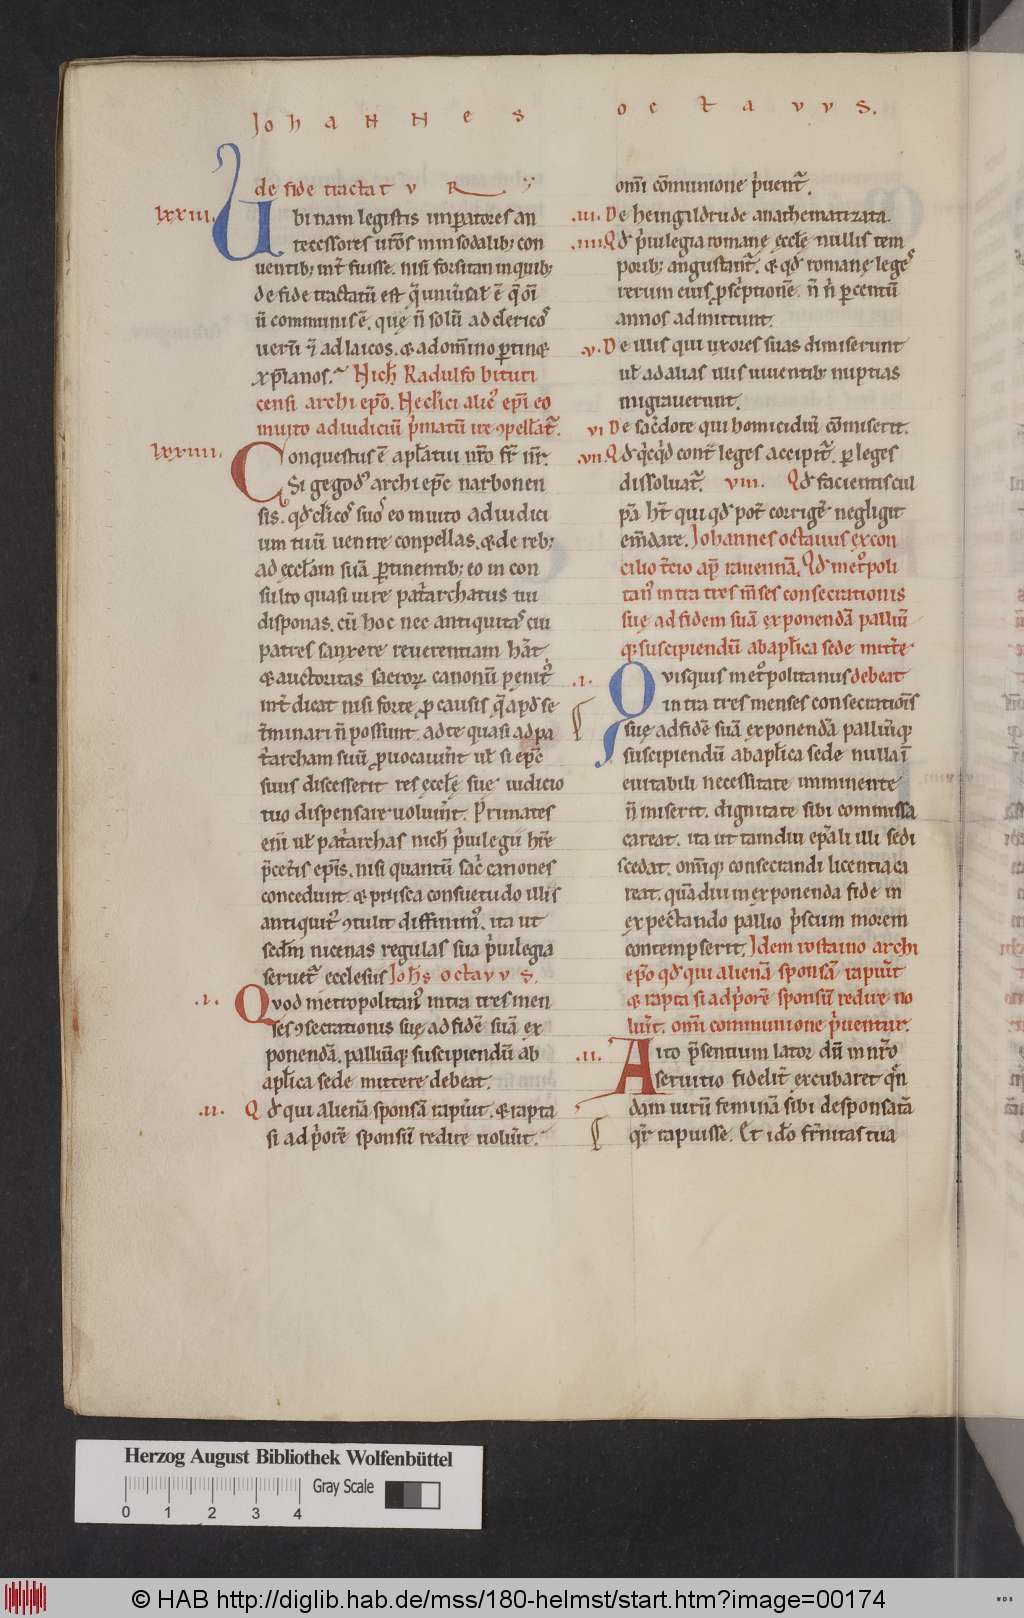 Johannes octavvs.
de fide tractat v R
lxxiii. Vbi nam legistis imꝑatores an
tecessores ur̄os in sinodalib; con
uentib; int̄ fuisse. nisi forsitan in quib;
de fide tractatū est q̄ uniu͛sał ē q̄ oī
ū communis ē. quę ñ solū ad clericoꝰ
uerū ⁊ ad laicos. & ad om̄ino ꝑtin&
xp̄ianos. Nich̄ Radulfo bituri
censi archi epō. Ne cłici alicꝰ ep̄i eo
inuito ad iudiciū p̍matū ire ꝯpellat͛.
lxxiiii. Conquestus ē apłatui nr̄o fr̄ nr̄.
Si gegodꝰ archi epc̄ narbonen
sis. qđ cłicoꝰ suoꝰ eo inuito ad iudici
um tuū uenire conpellas. & de reb;
ad ęccłam suā ꝑtinentib; eo in con
sulto quasi iure pat̍archatus tui
disponas. cū hoc nec antiquitaꝰ cui
patres sanxere reuerentiam hāt.
& auctoritas sacroꝝ canonū penitꝰ
int̄dicat nisi forte ꝓ causis q̄ apđ se
t̄minari ñ possunt. ad te quasi ad pa
t̍archam suū ꝓuocauer̄t uł si epc̄
suus discesserit res ęccłę suę iudicio
tuo dispensare uoluer̄t. Primates
eni uł pat̍archas nich p̍uilegii hr̄e
p̄cet̄is ep̄is. nisi quantū sac̄ canones
concedunt. & prisca consuetudo illis
antiquitꝰ ꝯtulit diffinimꝰ. ita ut
sedm̄ nicenas regulas sua p̍uilegia
seruet͛ ecclesiis Joħs octavvs.
.i. Quod metropolitanꝰ intra tres men
ses ꝯsecrationis suę ad fidē suā ex
ponendā. palliūq; suscipiendū ab
apłica sede mittere debeat.
.ii. Qđ qui alienā sponsā rapu͛it. & rapta
si ad p̍orē sponsū redire nolu͛it.
om̄i cōmunione p̍uent͛.
.iii. De heingildrude anathematizata.
.iiii. Qđ p̍uilegia romanę ęccłę nullis tem
porib; angustant͛. & qđ romanę legeꝰ
rerum eius ꝓsc̍ptionē. ñ n̍ ꝑ centū
annos admittunt.
.v. De illis qui uxores suas dimiserunt
uł ad alias illis uiuentib; nuptias
migrauerunt.
vi De sac̄dote qui homicidiū cōmiserit.
.vii. Qđ q̍cq̍d cont̄ leges accipit͛. ꝑ leges
dissoluat͛. viii. Qđ facientis cul
pā ht̄ qui qđ pot̄ corriḡe negligit
em̄dare. Johannes octauus ex con
cilio t̄cio ap̄ rauennā. Qđ metꝰpoli
tanꝰ intra tres m̄ses consecrationis
suę ad fidem suā exponendā palliū
q; suscipiendū ab apłica sede mitt̄e
.i. Qvisquis metꝰpolitanus debeat
intra tres menses consecrationis
suę ad fidē suā exponendā palliūq;
suscipiendū ab apłica sede nulla ī
euitabili necessitate imminente
ñ miserit. dignitate sibi commissa
careat. ita ut tamdiu ep̄ali illi sedi
scedat. om̄iq; consecrandi licentia ca
reat. quādiu in exponenda fide in
expectando pallio p̍scum morem
contempserit. Idem rostaino archi
epō qđ qui alienā sponsā rapu͛it
& rapta si ad p̍orē sponsū redire no
lu͛it. om̄i communione p̍uentur.
.ii. Aito p̄sentium lator dū in nr̄o
seruitio fidelit̄ excubaret q̄n
dam uirū feminā sibi desponsatā
qr̄ rapuisse. Et ido fr̄nitas tua
Herzog August Bibliothek Wolfenbüttel
Gray Scale
0 1 2 3 4
© HAB http://diglib.hab.de/mss/180-helmst/start.htm?image=00174